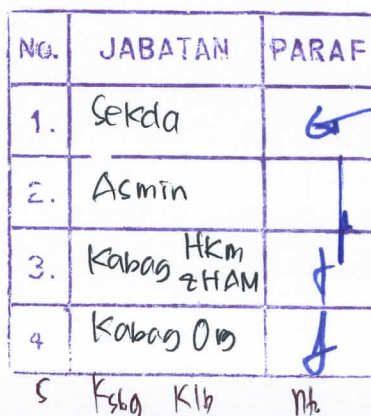 No. JABATAN PARAF
1. Sekda
2. Asmin
3. Kabag HKm & HAM
4 Kabag Org
5 Ksbg Klb